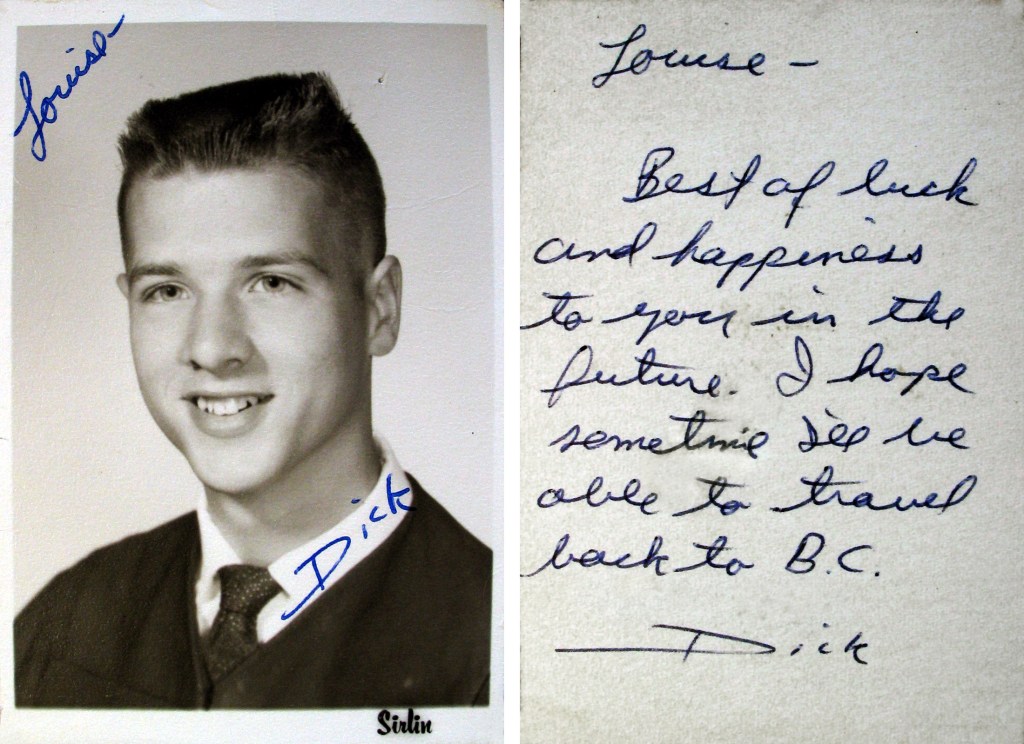 Louise-
Dick
Sirlin
Louise -
Best of luck
and happiness
to you in the
future. I hope
sometime I'll be
able to travel
back to B.C.
Dick